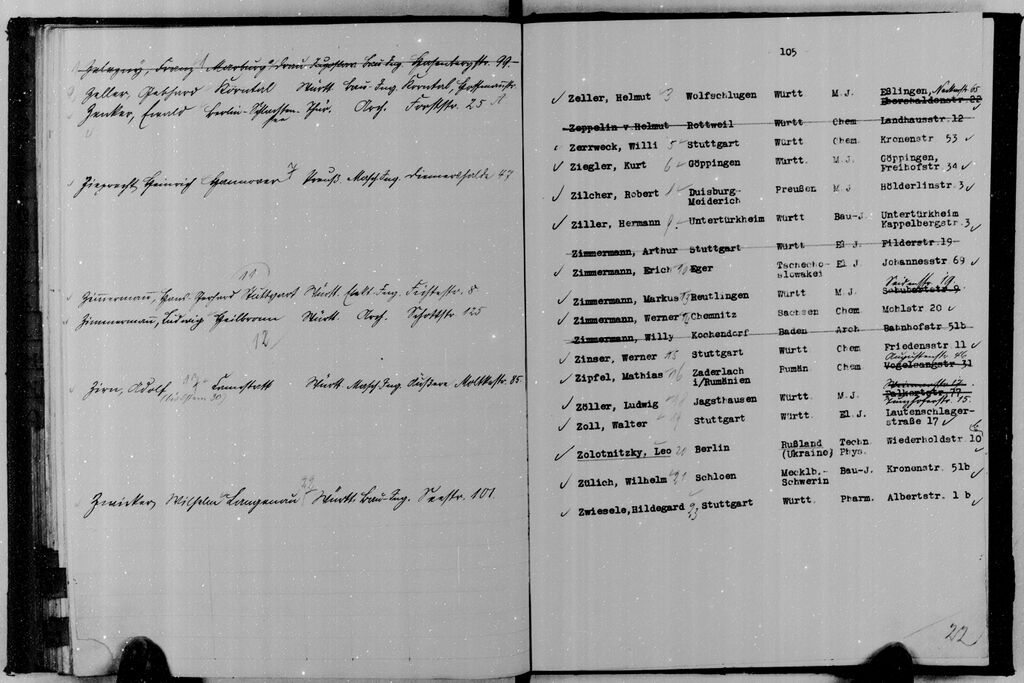 Zeller, Gebhard Korntal Württ. Bau-Ing. Korntal,
Zenker, Ewald Berlin-Schlachten- Thür. Arch. Forststr. 25 A
see
Hannover 7 Preuß. Masch. Ing. 47
11
Zimmermann, Hans Gerhard Stuttgart Württ. Elekt. Ing. 8
Zimmermann, Ludwig Heilbronn Württ. Arch. Schottstr. 125
12
Zirn, Adolf, Cannstatt Württ. Masch. Ing. Äußere Moltkestr. 85
22
Zwicker, Wilhelm Langenau Württ. Bau-Ing. Seestr. 101
105
✓ Zeller, Helmut 3 Wolfschlugen Württ M.J. Eßlingen, Neckarstr 65
Ebershaldenstr 22
Zeppelin v. Helmut Rottweil Württ Chem Landhausstr.12
Zerrweck, Willi 5 Stuttgart Württ Chem Kronenstr 53 ✓
✓ Ziegler, Kurt 6 Göppingen Württ. M.J. Göppingen,
Freihofstr 34 ✓
✓ Zilcher, Robert Duisburg- Preußen M.J Hölderlinstr.3 ✓
Meiderich
✓ Ziller, Hermann 9 Untertürkheim Württ Bau-J. Untertürkheim
Kappelbergstr.3 ✓
Zimmermann, Arthur Stuttgart Württ El J. Filderstr.19
✓ Zimmermann, Erich 10 Eger Tschecho- El J. Johannesstr 69 ✓
slowakei
Seidenstr 19
✓ Zimmermann, Markus Reutlingen Württ M.J. Schubertstr 9
✓ Zimmermann, Werner Chemnitz Sachsen Chem Mohlstr 20 ✓
Zimmermann, Willy Kochendorf Baden Arch Bahnhofstr 51b
✓ Zinser, Werner 15 Stuttgart Württ Chem Friedensstr 11 ✓
Augustenstr 46
✓ Zipfel, Mathias 16 Zaderlach Rumän Chem Vogelsangstr 31
i/Rumänien
✓ Zöller, Ludwig Jagsthausen Württ M.J. Falkertstr 77
15.
✓ Zoll, Walter 19 Stuttgart Württ El.J. Lautenschlager-
straße 17 ✓
✓ Zolotnitzky, Leo 20 Berlin Rußland Techn. Wiederholdstr 10
(Ukraine) Phys.
✓ Zülich, Wilhelm 21 Schloen Mecklb.- Bau-J. Kronenstr 51b
Schwerin
✓ Zwiesele,Hildegard 23 Stuttgart Württ. Pharm. Albertstr. 1 b ✓
22